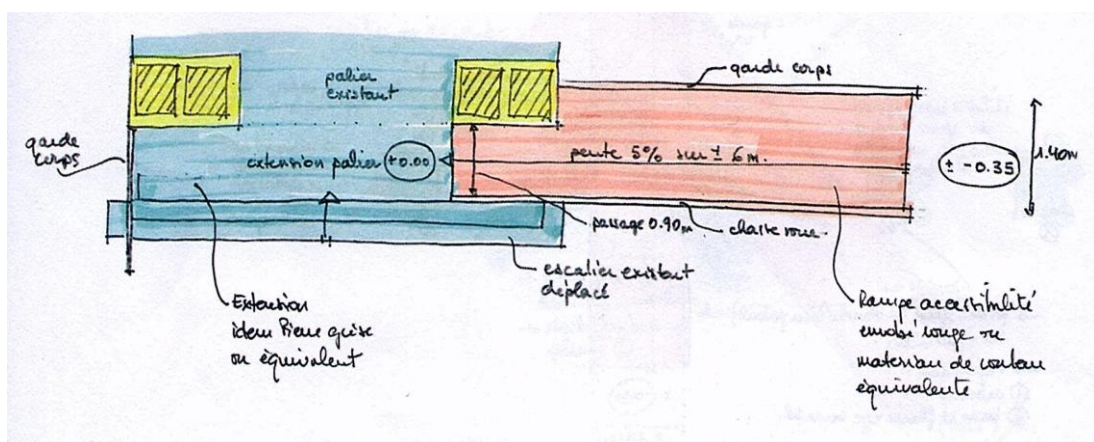 garde corps
palier
existant
garde
corps
extension palier
+0.00
pente 5% sur ± 6 m.
± -0.35
1.40m
passage 0.90m
chasse roue.
escalier existant
déplacé
Extension
idem Pierre grise
ou équivalent
Rampe accessibilité
enrobé rouge ou
materiau de couleur
équivalente